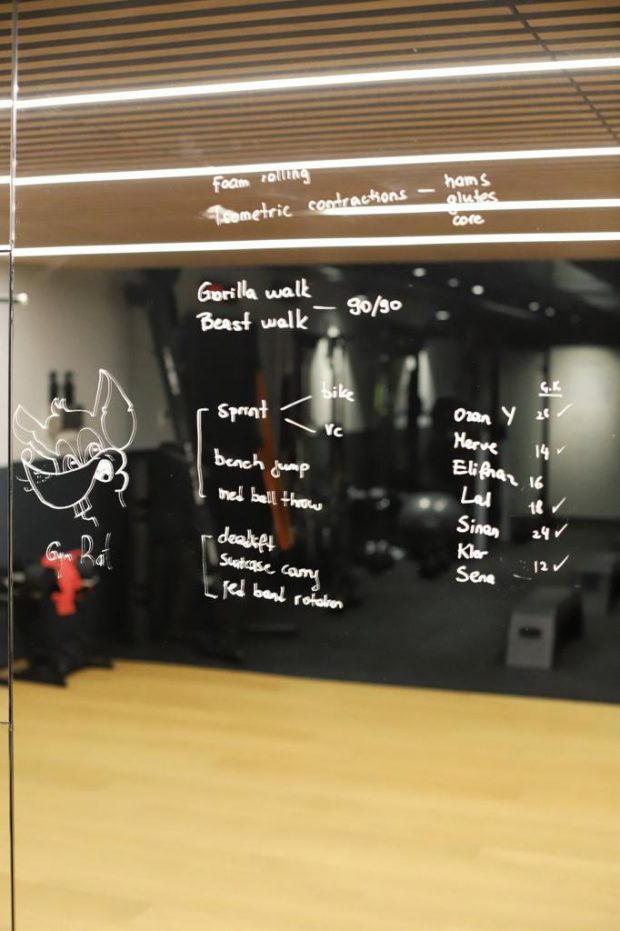 Foam rolling
Isometric contractions — hams
glutes
core
Gorilla walk
Beast walk — 90/90
Sprint
bike
vc
bench jump
med ball throw
deadlift
suitcase carry
red band rotation
Gym Rat
G.K
Ozan Y 28 ✓
Merve 14 ✓
Elifnaz 16
Lal 18 ✓
Sinan 24 ✓
Kler 12 ✓
Sena